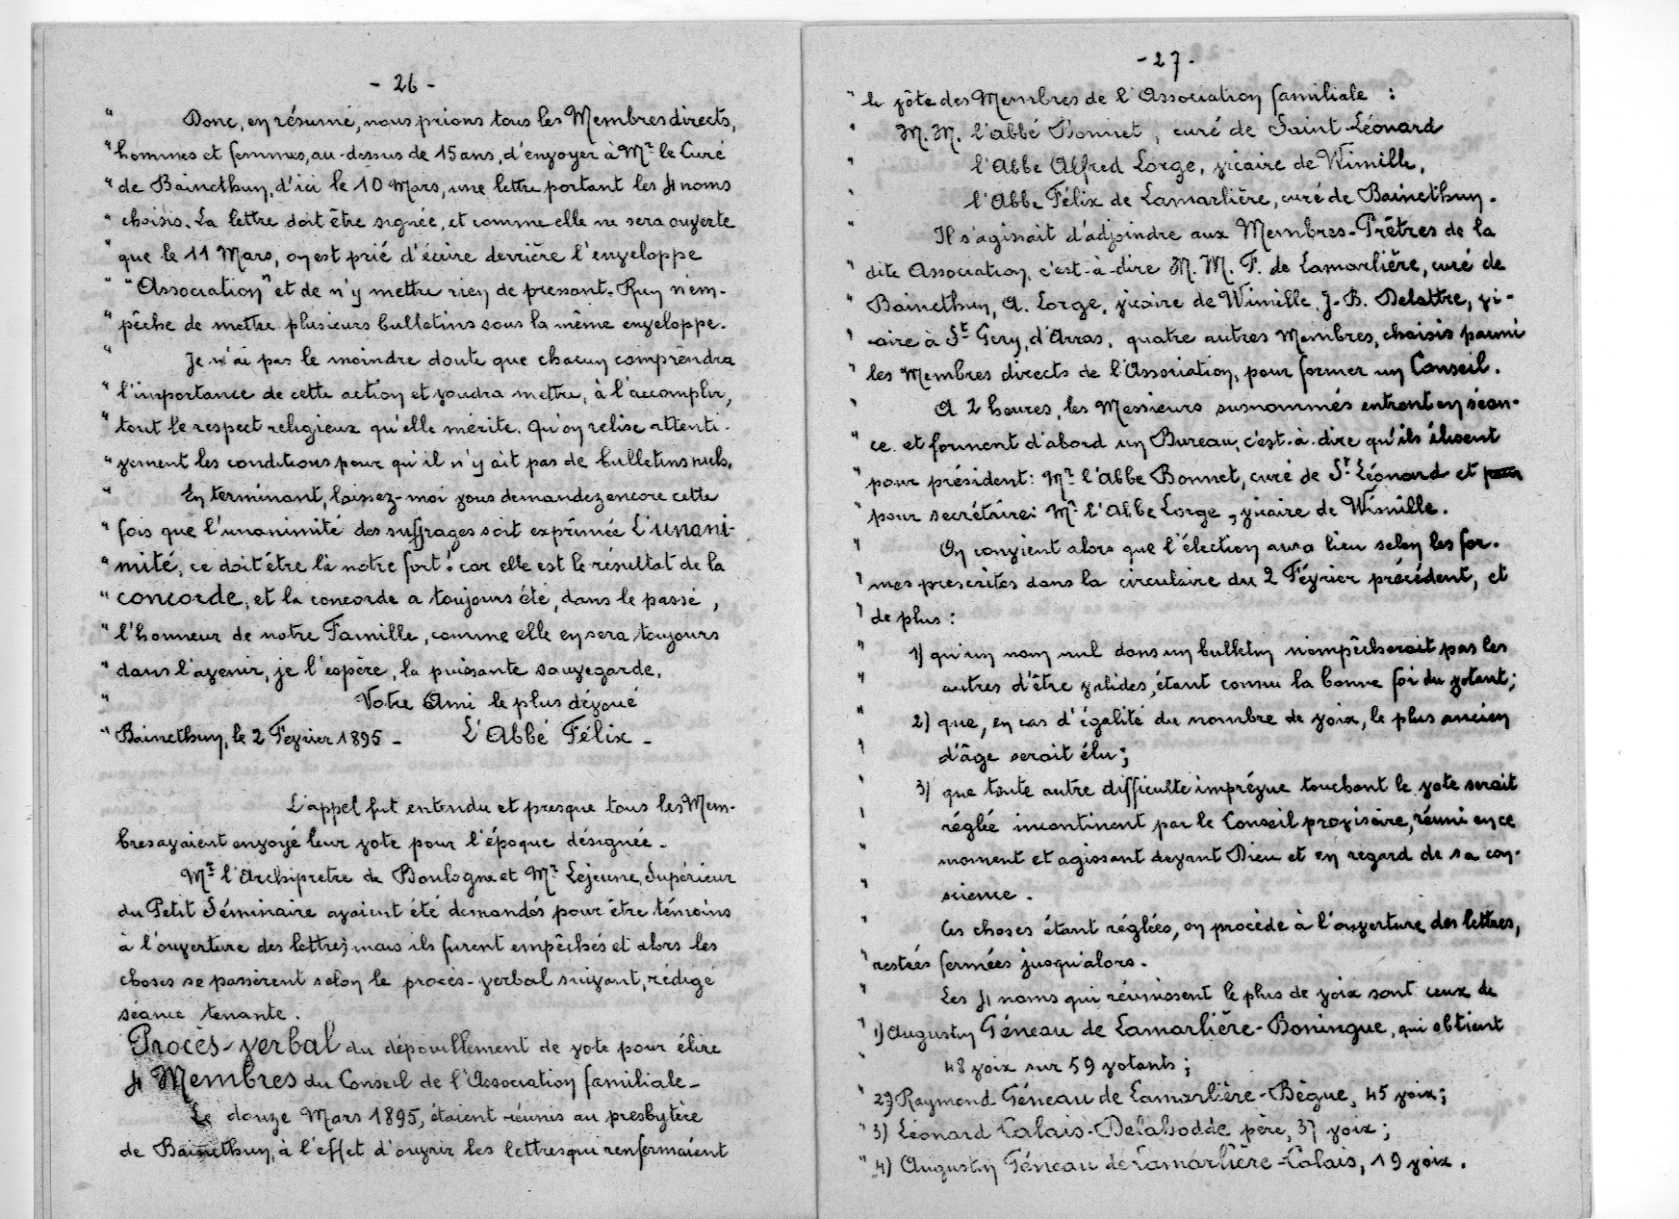 - 26 -
" Donc, en résumé, nous prions tous les Membres directs,
" hommes et femmes, au-dessus de 15 ans, d'envoyer à Mr le Curé
" de Bainethun, d'ici le 10 Mars, une lettre portant les 4 noms
" choisis. La lettre doit être signée, et comme elle ne sera ouverte
" que le 11 Mars, on est prié d'écrire derrière l'enveloppe
" "Association" et de n'y mettre rien de pressant. Rien n'em-
" pêche de mettre plusieurs bulletins sous la même enveloppe.
" Je n'ai pas le moindre doute que chacun comprendra
" l'importance de cette action et voudra mettre, à l'accomplir,
" tout le respect religieux qu'elle mérite. Qu'on relise attenti-
" vement les conditions pour qu'il n'y ait pas de bulletins nuls.
" En terminant, laissez-moi vous demandez encore cette
" fois que l'unanimité des suffrages soit exprimée L'unani-
" mité, ce doit être là notre fort! car elle est le résultat de la
" concorde, et la concorde a toujours été, dans le passé,
" l'honneur de notre Famille, comme elle en sera toujours
" dans l'avenir, je l'espère, la puissante sauvegarde.
" Votre Ami le plus dévoué
" Bainethun, le 2 Février 1895 - L'Abbé Félix -
L'appel fut entendu et presque tous les Mem-
bres avaient envoyé leur vote pour l'époque désignée -
Mr l'Archiprêtre de Boulogne et Mr Lejeune, Supérieur
du Petit Séminaire avaient été demandés pour être témoins
à l'ouverture des lettres, mais ils furent empêchés et alors les
choses se passèrent selon le procès-verbal suivant, rédigé
séance tenante.
Procès-verbal du dépouillement de vote pour élire
4 Membres du Conseil de l'Association familiale -
Le douze Mars 1895, étaient réunis au presbytère
de Bainethun, à l'effet d'ouvrir les lettres qui renfermaient
- 27 -
" le vôte des Membres de l'Association familiale :
" M. M. l'abbé Bonnet, curé de Saint-Léonard
" l'Abbé Alfred Lorge, vicaire de Wimille,
" l'Abbé Félix de Lamarlière, curé de Bainethun.
" Il s'agissait d'adjoindre aux Membres-Prêtres de la
" dite Association, c'est-à-dire M. M. F. de Lamarlière, curé de
" Bainethun, A. Lorge, vicaire de Wimille, J-B. Delattre, vi-
" caire à St Gery, d'Arras, quatre autres Membres, choisis parmi
" les Membres directs de l'Association, pour former un Conseil.
" A 2 heures, les Messieurs susnommés entrent en séan-
" ce et forment d'abord un Bureau, c'est-à-dire qu'ils élisent
" pour président: Mr l'Abbé Bonnet, curé de St Léonard et pour
" pour secrétaire: Mr l'Abbé Lorge, vicaire de Wimille.
" On convient alors que l'élection aura lieu selon les for-
" mes prescrites dans la circulaire du 2 Février précédent, et
" de plus :
" 1) qu'un nom nul dans un bulletin n'empêcherait pas les
" autres d'être valides, étant connu la bonne foi du votant;
" 2) que, en cas d'égalité du nombre de voix, le plus ancien
" d'âge serait élu;
" 3) que toute autre difficulté imprévue touchant le vote serait
" réglée incontinent par le Conseil provisoire, réuni en ce
" moment et agissant devant Dieu et en regard de sa con-
" science.
" Ces choses étant réglées, on procède à l'ouverture des lettres,
" restées fermées jusqu'alors.
" Les 4 noms qui réunissent le plus de voix sont ceux de
" 1) Augustin Géneau de Lamarlière-Boningue, qui obtient
" 48 voix sur 59 votants;
" 2) Raymond Géneau de Lamarlière-Bègue, 45 voix;
" 3) Léonard Calais-Delahodde père, 37 voix;
" 4) Augustin Géneau de Lamarlière-Calais, 19 voix.